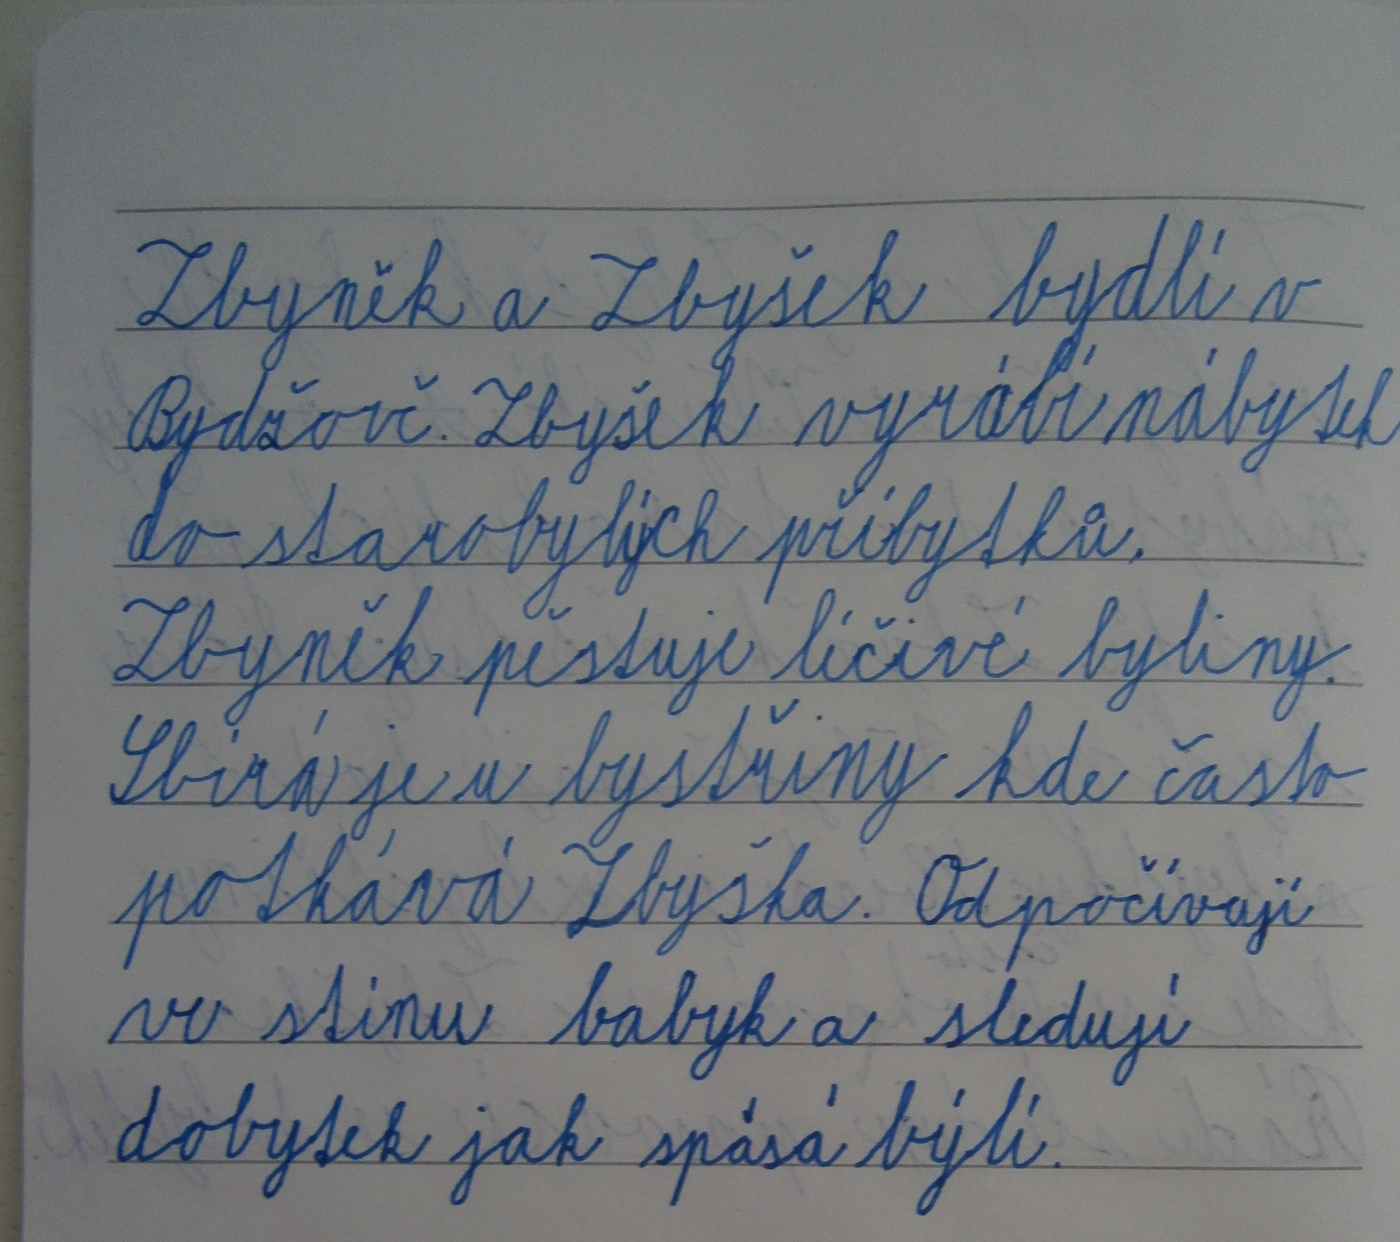 Zbyněk a Zbyšek bydlí v
Bydžově. Zbyšek vyrábí nábytek
do starobylých příbytků.
Zbyněk pěstuje líčivé byliny.
Sbírá je u bystřiny kde často
potkává Zbyška. Odpočívají
ve stínu babyk a sledují
dobytek jak spásá býlí.